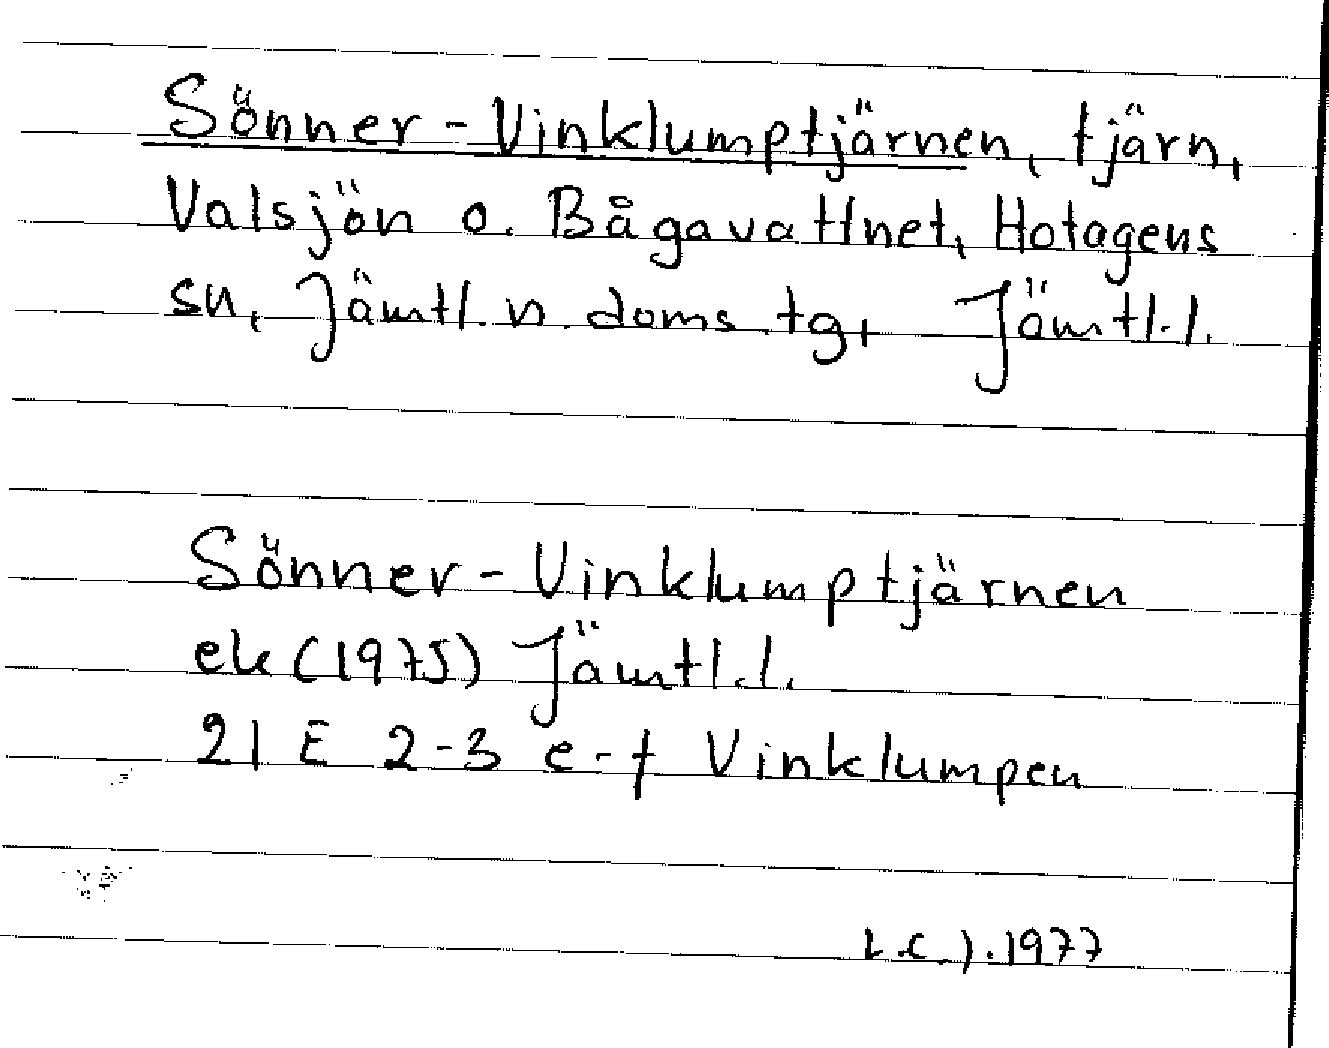 Sönner-Vinklumptjärnen, tjärn,
Valsjön o. Bågavattnet, Hotagens
sn, Jämtl. n. doms.tg, Jämtl.l.
Sönner-Vinklumptjärnen
ek (1975) Jämtl.l.
21 E 2-3 e-f Vinklumpen
1977